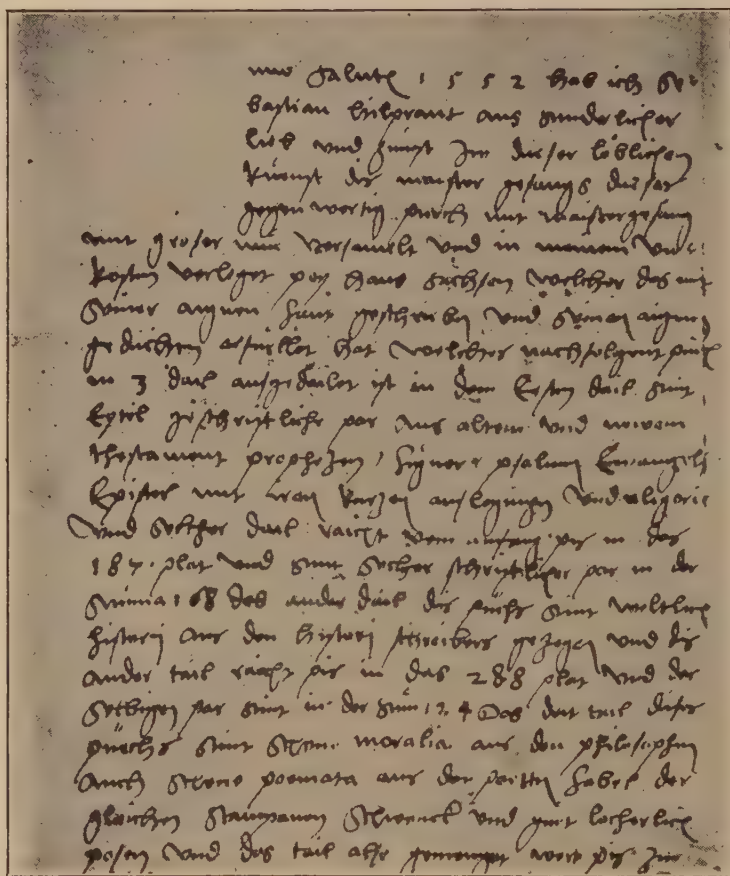 nno salutis 1552 hab ich Se-
bastian hilprant aus sunderlicher
lieb und gunst zw dieser löblichen
kuenst des maister gesangs dieses
gegenwertig puech mit maistergesang
mit groser mue versamelt und in meinem
kosten verleget pey hans sachsen welcher das mit
seiner aignen hant geschrieben und seinen aignen
gedichten erfuellet hat welches nachfolgent puech
in 3 dail ausgedailet ist in dem Ersten dail sint
Eytel geschriftliche par aus altem und newem
thestament prophezen figuren psalmen Ewangeli
Epistel mit iren kurzen auslegungen und aligorie
Und solcher dail raicht vom anfang pis in das
187 plat und sint solcher schriftlicher par in der
Summa 168 das ander dail des puechs sint weltlich
histori aus den histori schreibers gezogen und dis
ander tail raicht pis in das 288 plat und der
selbigen par sint in der sum 124 Das drit tail dises
puechs sint schone moralia aus den philosophen
Auch schone poemata aus der poetten fabel der
gleichen Stampaney Schwenck und guet lecherlich
posen und das tail alhe gemenget wert pis zum